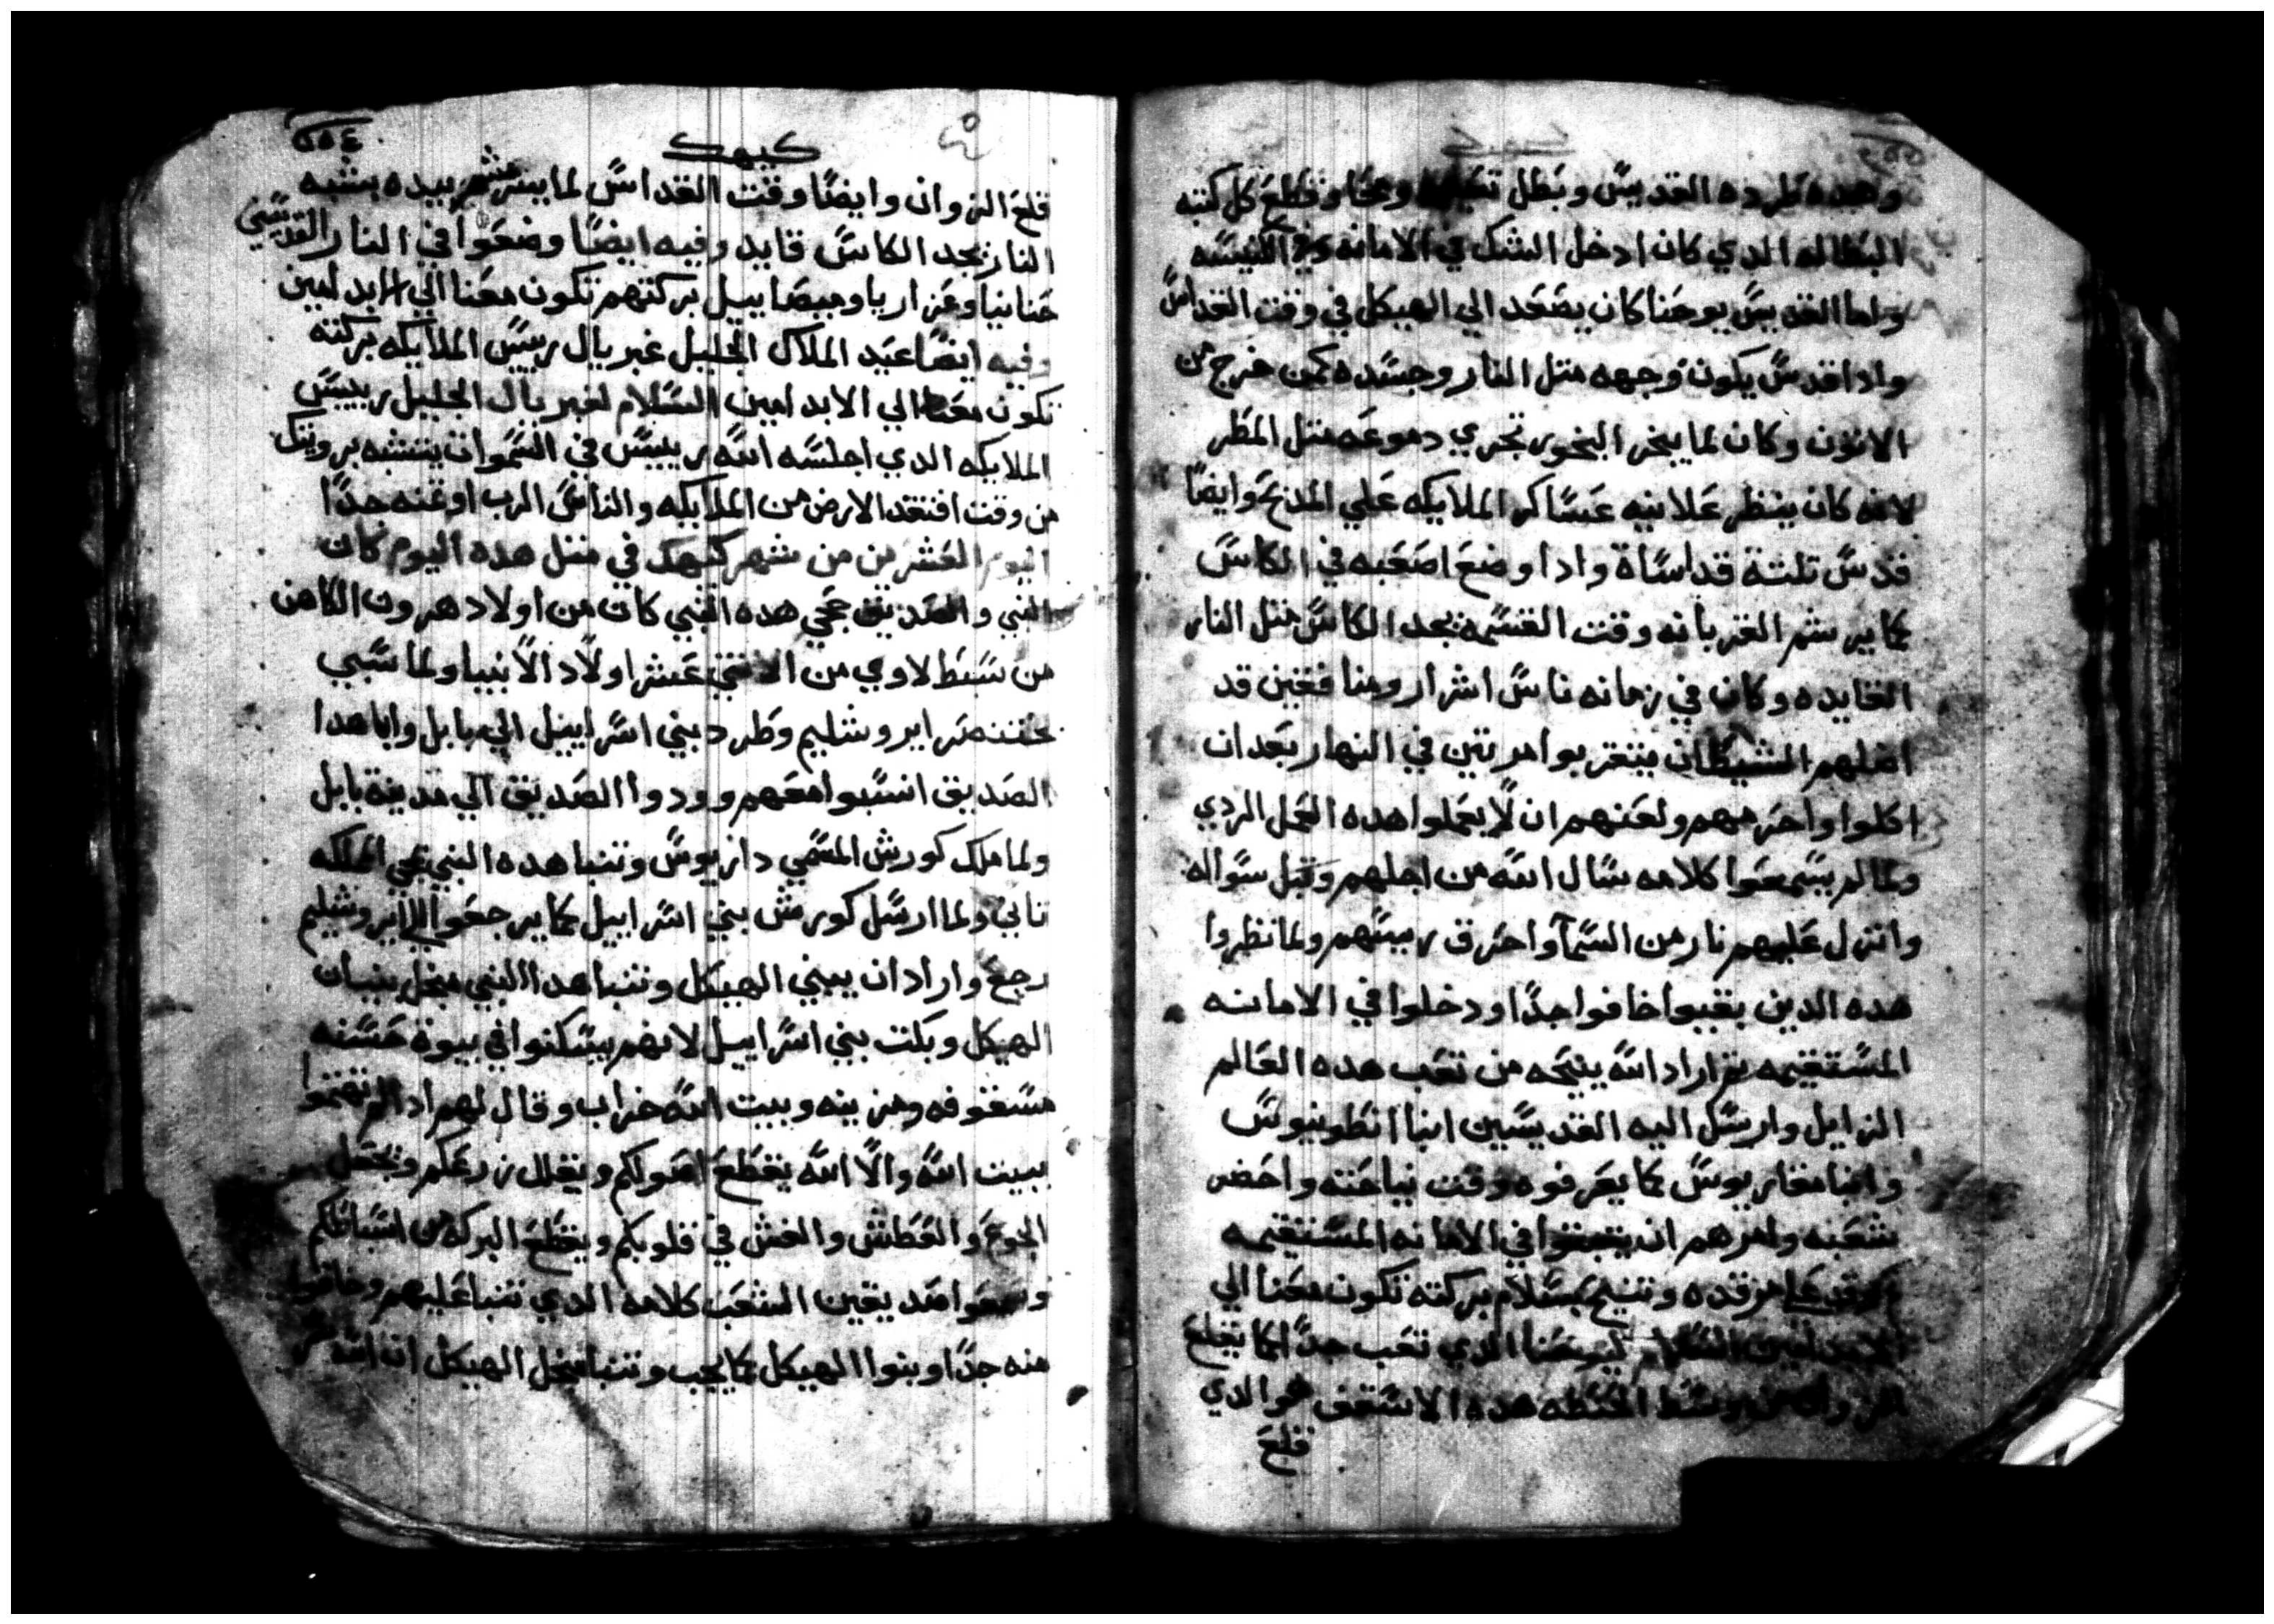 كيهك
وهده طرده القديس وبطل تعليمه ومحا وقطع كل كتبه
البطاله الدي كان ادخل الشك في الامانه وفي الكنيسه
واما القديس يوحنا كان يصعد الي الهيكل في وقت القداس
وادا قدس يكون وجهه متل النار وجسده كمن خرج من
الاتون وكان لما يبخر البخور تجري دموعه متل المطر
لانه كان ينظر علانيه عساكر الملايكه علي المدبح وايضا
قدس تلتة قداساة وادا وضع اصعبه في الكاس
كما يرشم القربانه وقت القسمه يجد الكاس متل النار
القايده وكان في زمانه ناس اشرار ومنافقين قد
اضلهم الشيطان يتقربوا مرتين في النهار بعد ان
اكلوا واحرمهم ولعنهم ان لا يعملوا هده العمل الردي
ولما لم يسمعوا كلامه سال الله من اجلهم وقبل سواله
وانزل عليهم نار من السما واحرق رييسهم ولما نظروا
هده الدين بقيوا خافوا جدا ودخلوا في الامانه
المستقيمه تم اراد الله ينيحه من تعب هده العالم
الزايل وارسل اليه القديسين انبا انطونيوس
وانبا مقاريوس كما يعرفوه وقت نياحته واحضر
شعبه وامرهم ان يتبتوا في الامانه المستقيمه
مرقده وتنيح بسلام بركته تكون معنا الي
الابد امين السلام ليوحنا الدي تعب جدا لما يقلع
الزوان من وسط الحنطه هده الاسقف هو الدي
قلع
٥٥٤
كيهك
قلع الزوان وايضا وقت القداس لما يرشم بيده يشبه
النار يجد الكاس قايد وفيه ايضا وضعوا في النار القديسين
حنانيا وعزاريا وميصاييل بركتهم تكون معنا الي الابد امين
وفيه ايضا عيد الملاك الجليل غبريال رييس الملايكه بركته
تكون معنا الي الابد امين السلام لغبريال الجليل رييس
الملايكه الدي اجلسه الله رييس في السموات يتشبه برويتك
من وقت افتقد الارض من الملايكه والناس الرب اوتمنه جدا
اليوم العشرين من شهر كيهك في متل هده اليوم كان
النبي والصديق حجي هده النبي كان من اولاد هرون الكاهن
من سبط لاوي من الاتني عشر اولاد الانبيا ولما سبي
بختنصر ايروشليم وطرد بني اسراييل الي بابل وابا هدا
الصديق انسبوا معهم وودوا الصديق الي مدينة بابل
ولما ملك كورش المسمي داريوس وتنبا هده النبي في الملكه
تاني ولما ارسل كورش بني اسراييل كما يرجعوا الي ايروشليم
رجع واراد ان يبني الهيكل وتنبا هدا النبي من اجل بنيان
الهيكل وبكت بني اسراييل لانهم يسكنوا في بيوة حسنه
مسقوفه ومزينه وبيت الله خراب وقال لهم ادا لم تهتموا
ببيت الله والا الله يقطع اصولكم ويقلل زرعكم ويجعل
الجوع والعطش والغش في قلوبكم ويقطع البركه من اسباطكم
وسمعوا صديقين الشعب كلامه الدي تنبا عليهم وخافوا
منه جدا وبنوا الهيكل كما يجب وتنبا من اجل الهيكل ان الله